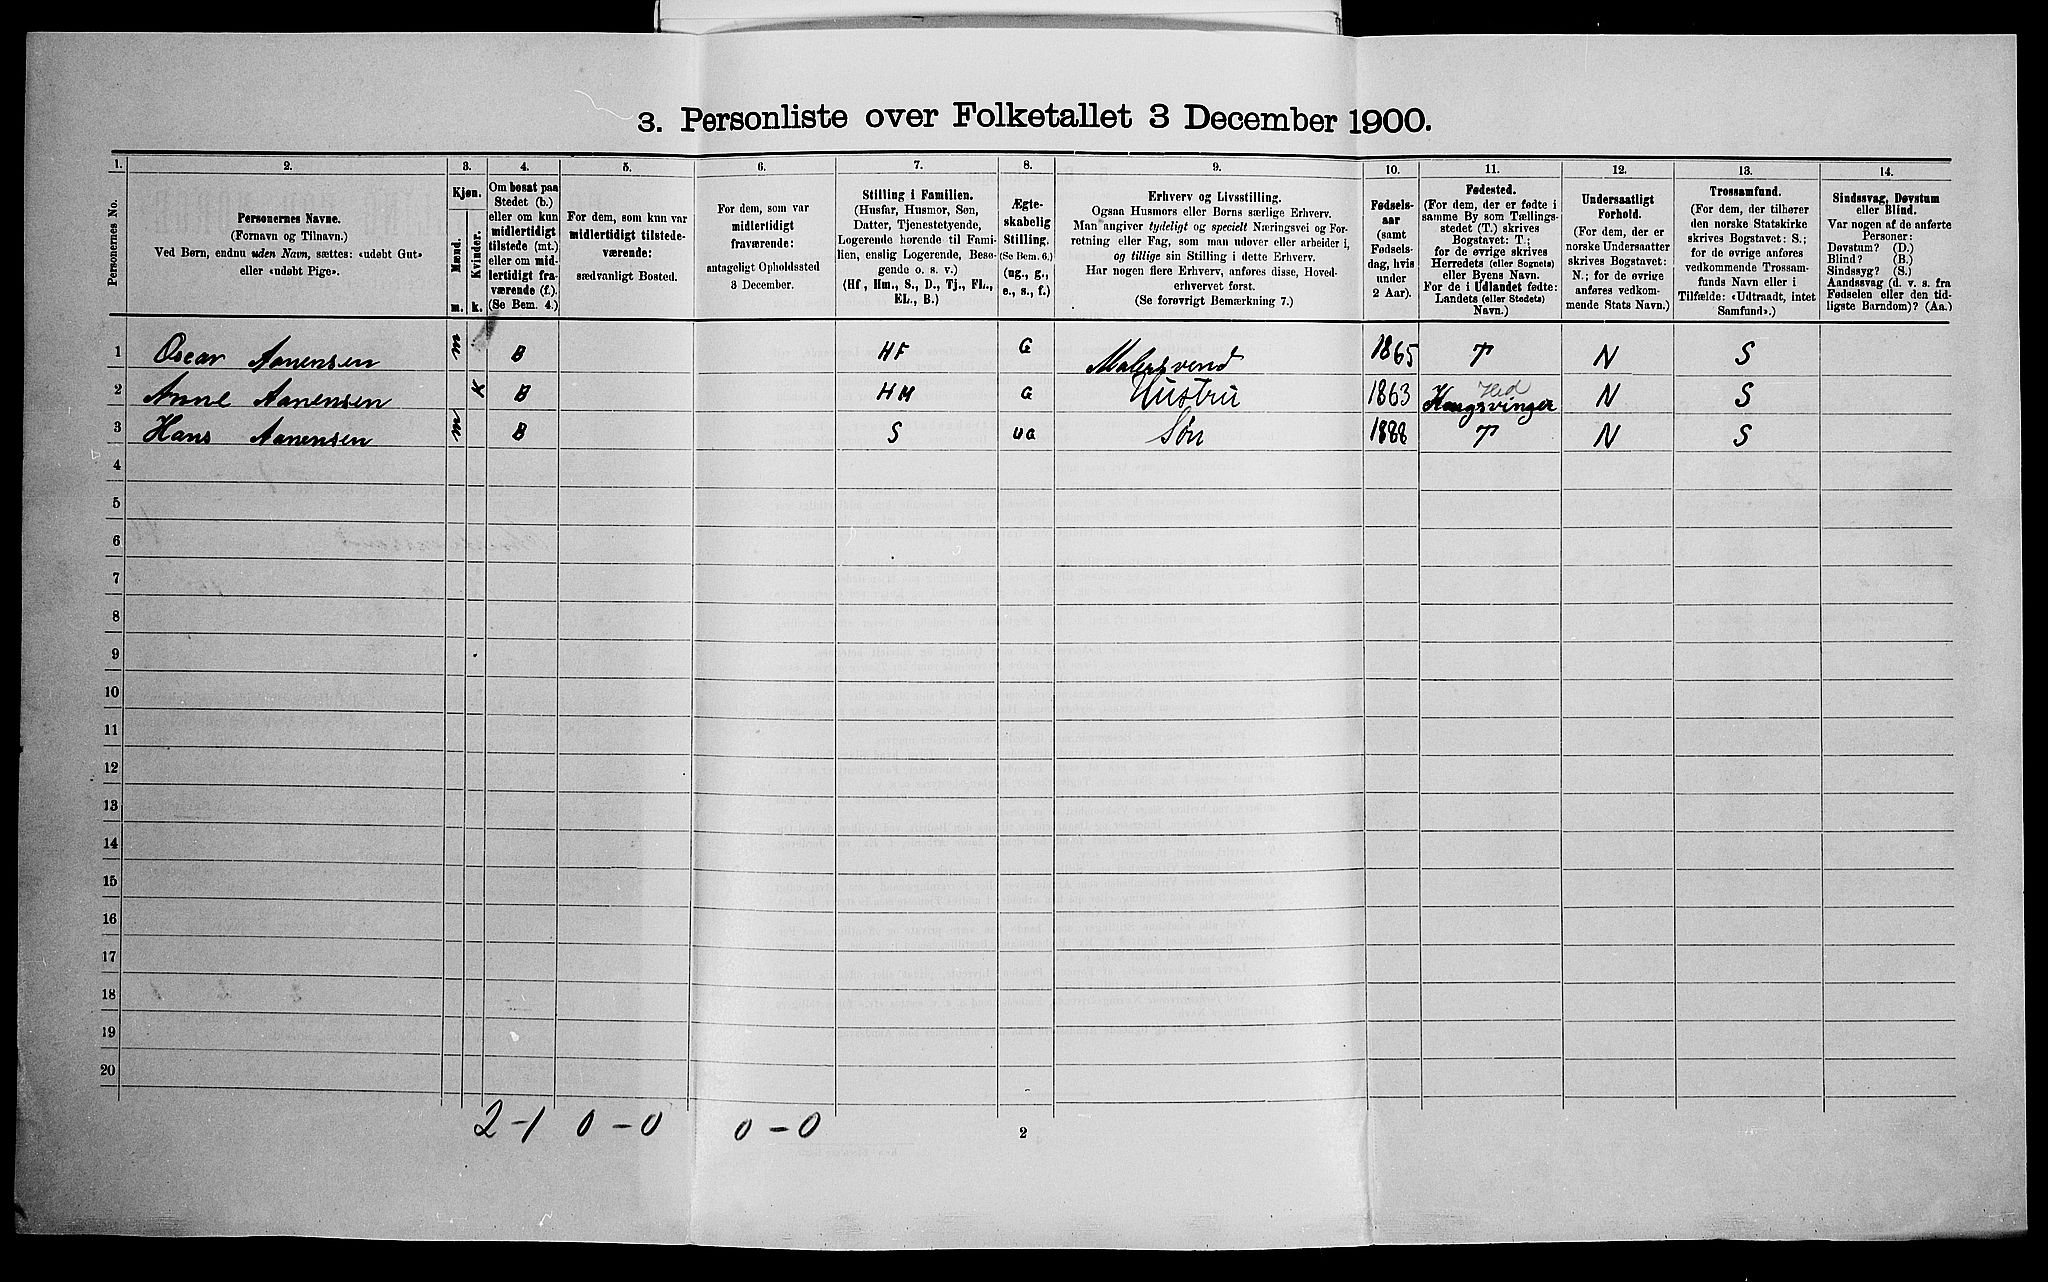 3. Personliste over Folketallet 3 December 1900.
1. 2. 3. 4. 5. 6. 7. 8. 9. 10. 11. 12. 13. 14.
Personernes No.
Personernes Navne.
(Fornavn og Tilnavn.)
Ved Børn, endnu uden Navn, sættes: «udøbt Gut»
eller «udøbt Pige».
Kjøn.
Mænd.
Kvinder.
m. k.
Om bosat paa
Stedet (b.)
eller om kun
midlertidigt
tilstede (mt.)
eller om mid-
lertidigt fra-
værende (f.).
(Se Bem. 4.)
For dem, som kun var
midlertidigt tilstede-
værende:
sædvanligt Bosted.
For dem, som var
midlertidigt
fraværende:
antageligt Opholdssted
3 December.
Stilling i Familien.
(Husfar, Husmor, Søn,
Datter, Tjenestetyende,
Logerende hørende til Fami-
lien, enslig Logerende, Besø-
gende o. s. v.)
(Hf, Hm., S., D., Tj., FL.,
EL., B.)
Ægte-
skabelig
Stilling.
(Se Bem. 6.)
(ug., g.,
e., s., f.)
Erhverv og Livsstilling.
Ogsaa Husmors eller Børns særlige Erhverv.
Man angiver tydeligt og specielt Næringsvei og For-
retning eller Fag, som man udøver eller arbeider i,
og tillige sin Stilling i dette Erhverv.
Har nogen flere Erhverv, anføres disse, Hoved-
erhvervet først.
(Se forøvrigt Bemærkning 7.)
Fødsels-
aar
(samt
Fødsels-
dag, hvis
under
2 Aar).
Fødested.
(For dem, der er fødte i
samme By som Tællings-
stedet (T.) skrives
Bogstavet: T.;
for de øvrige skrives
Herredets (eller Sognets)
eller Byens Navn.
For de i Udlandet fødte:
Landets (eller Stedets)
Navn.)
Undersaatligt
Forhold.
(For dem, der er
norske Undersaatter
skrives Bogstavet:
N.; for de øvrige
anføres vedkom-
mende Stats Navn.)
Trossamfund.
(For dem, der tilhører
den norske Statskirke
skrives Bogstav: S.;
for de øvrige anføres
vedkommende Trossam-
funds Navn eller i
Tilfælde: «Udtraadt, intet
Samfund».)
Sindssvag, Døvstum
eller Blind.
Var nogen af de anførte
Personer:
Døvstum? (D.)
Blind? (B.)
Sindssyg? (S.)
Aandssvag (d. v. s. fra
Fødselen eller den tid-
ligste Barndom)? (Aa.)
1 Oscar Aanensen m B HF G Malersvend 1865 T N S
2 Anne Aanensen K B HM G Hustru 1863 Kongsvinger Hed N S
3 Hans Aanensen m B S UG Søn 1888 T N S
4
5
6
7
8
9
10
11
12
13
14
15
16
17
18
19
20
2-1 0-0 0-0
2